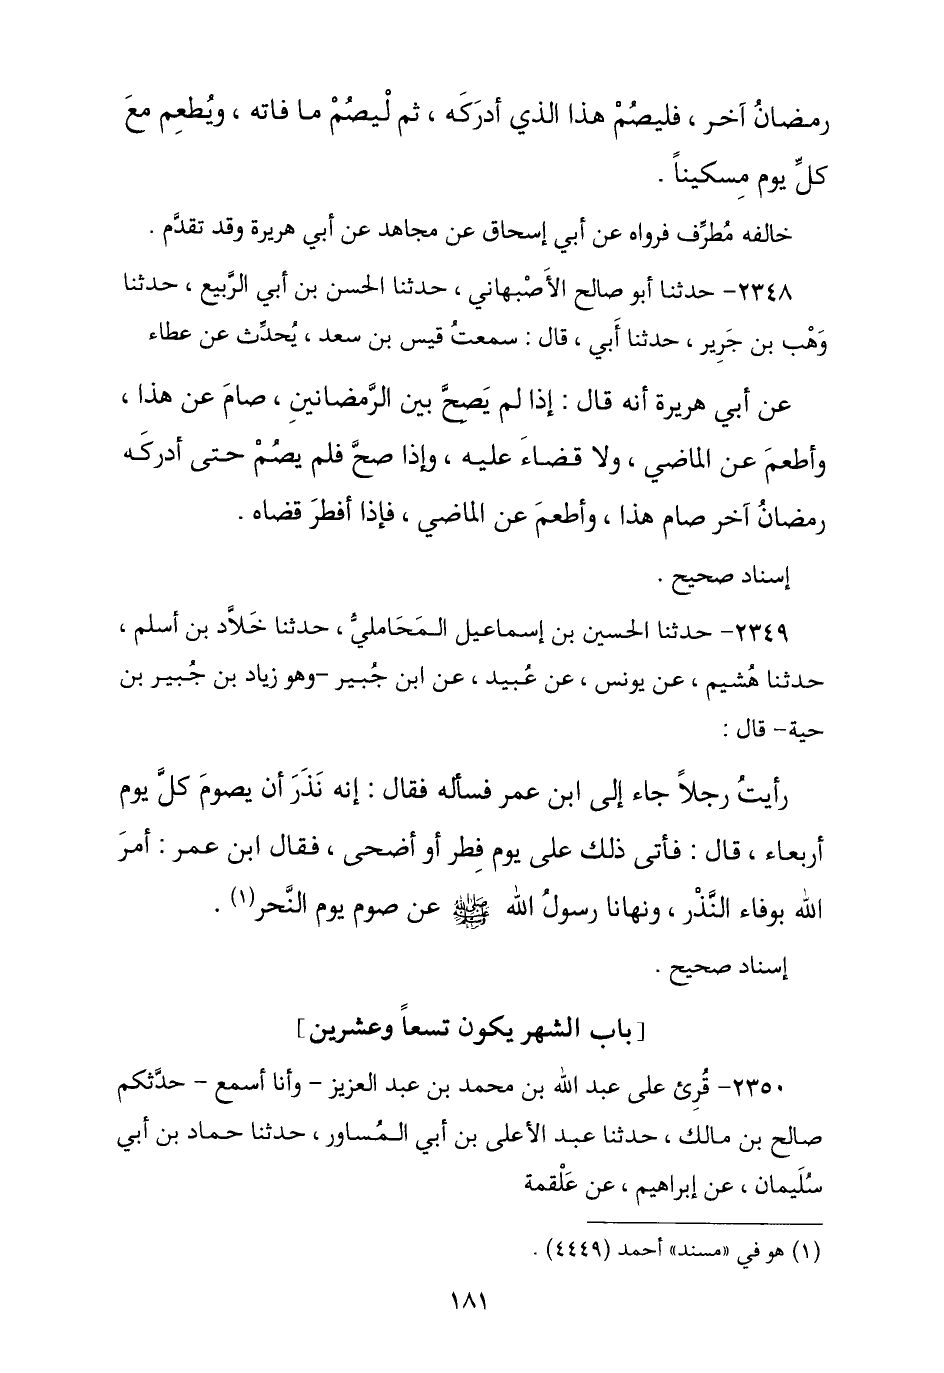 رمضانُ آخر ، فليصُمْ هذا الذي أدرَكَه ، ثم لْيصُمْ ما فاته ، ويُطعِم معَ
كلِّ يوم مِسكيناً .
خالفه مُطرِّف فرواه عن أبي إسحاق عن مجاهد عن أبي هريرة وقد تقدَّم .
٢٣٤٨- حدثنا أبو صالح الأَصْبهاني ، حدثنا الحسن بن أبي الرَّبيع ، حدثنا
وَهْب بن جَرِير ، حدثنا أَبي ، قال : سمعتُ قيس بن سعد ، يُحدِّث عن عطاء
عن أبي هريرة أنه قال : إذا لم يَصِحَّ بين الرَّمضانينِ ، صامَ عن هذا ،
وأطعمَ عن الماضي ، ولا قضاءَ عليه ، وإذا صحَّ فلم يصُمْ حتى أدركَه
رمضانُ آخر صام هذا ، وأطعمَ عن الماضي ، فإذا أفطرَ قضاه .
إسناد صحيح .
٢٣٤٩- حدثنا الحسين بن إسماعيل المَحَامليُّ ، حدثنا خَلاَّد بن أسلم ،
حدثنا هُشيم ، عن يونس ، عن عُبيد ، عن ابن جُبير -وهو زياد بن جُبير بن
حية- قال :
رأيتُ رجلاً جاء إلى ابن عمر فسأله فقال : إنه نَذَرَ أن يصومَ كلَّ يوم
أربعاء ، قال : فأتى ذلك على يوم فِطر أو أضحى ، فقال ابن عمر : أمرَ
الله بوفاء النَّذْر ، ونهانا رسولُ الله ﷺ عن صوم يوم النَّحر(١) .
إسناد صحيح .
[باب الشهر يكون تسعاً وعشرين]
٢٣٥٠- قُرِئ على عبد الله بن محمد بن عبد العزيز - وأنا أسمع - حدَّثكم
صالح بن مالك ، حدثنا عبد الأعلى بن أبي المُساور ، حدثنا حماد بن أبي
سُلَيمان ، عن إبراهيم ، عن عَلْقمة
(١) هو في «مسند» أحمد (٤٤٤٩) .
١٨١